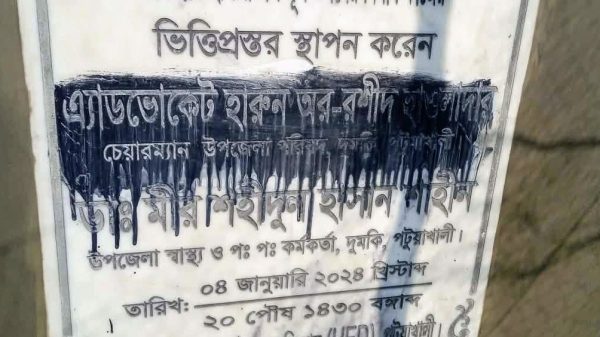 ভিত্তিপ্রস্তর স্থাপন করেন
এ্যাডভোকেট হারুন অর-রশীদ হাওলাদার
চেয়ারম্যান উপজেলা পরিষদ, দুমকি, পটুয়াখালী।
ডাঃ মীর শহীদুল হাসান শাহীন
উপজেলা স্বাস্থ্য ও পঃ পঃ কর্মকর্তা, দুমকি, পটুয়াখালী।
০৪ জানুয়ারি ২০২৪ খ্রিস্টাব্দ
তারিখ:
২০ পৌষ ১৪৩০ বঙ্গাব্দ
(HED) পটুয়াখালী।